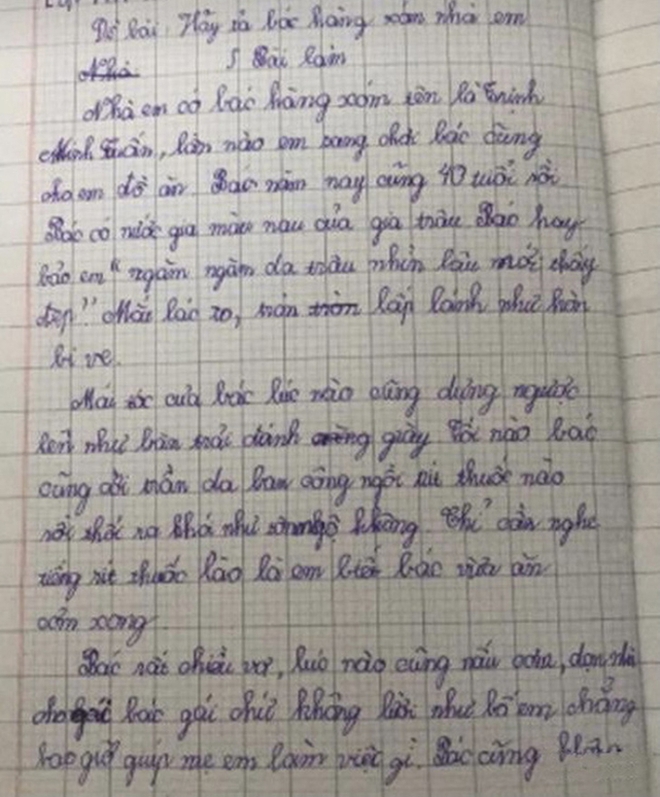 Đề bài: Hãy tả bác hàng xóm nhà em
Bài làm
Nhà em có bác hàng xóm tên là Trịnh
Minh Tuấn, lần nào em sang chơi bác cũng
cho em đồ ăn. Bác năm nay cũng 40 tuổi rồi
Bác có nước gia màu nau của gia trâu. Bác hay
bảo em "ngăm ngăm da trâu nhìn lâu mới thấy
đẹp". Mắt bác to, tròn lấp lánh như hòn
bi ve.
Mái tóc của bác lúc nào cũng dựng ngược
lên như bàn trải đánh giày. Tối nào bác
cũng cởi trần da ban công ngồi rít thuốc nào
rồi thổi ra khói như khổng. Chỉ cần nghe
tiếng rít thuốc lào là em biết bác vừa ăn
cơm xong
Bác rất chiều vợ, lúc nào cũng nấu cơm, dọn nhà
cho bác gái chứ không lười như bố em chẳng
bao giờ giúp mẹ em làm việc gì. Bác cũng